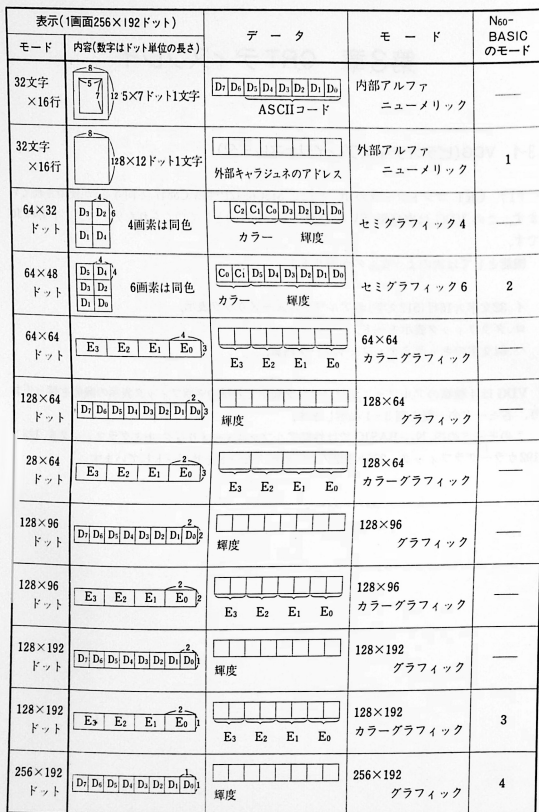 表示(1画面256×192ドット)
データ
モード
N60-BASICのモード
モード
内容(数字はドット単位の長さ)
32文字×16行
8
5
7
12
5×7ドット1文字
D7 D6 D5 D4 D3 D2 D1 D0
ASCIIコード
内部アルファニューメリック
——
32文字×16行
8
12
8×12ドット1文字
外部キャラジュネのアドレス
外部アルファニューメリック
1
64×32ドット
4
D3 D2 6
D1 D4
4画素は同色
C2 C1 C0 D3 D2 D1 D0
カラー 輝度
セミグラフィック4
——
64×48ドット
4
D5 D4 4
D3 D2
D1 D0
6画素は同色
C0 C1 D5 D4 D3 D2 D1 D0
カラー 輝度
セミグラフィック6
2
64×64ドット
4
E3 E2 E1 E0 3
E3 E2 E1 E0
64×64カラーグラフィック
——
128×64ドット
2
D7 D6 D5 D4 D3 D2 D1 D0 3
輝度
128×64グラフィック
——
28×64ドット
2
E3 E2 E1 E0 3
E3 E2 E1 E0
128×64カラーグラフィック
——
128×96ドット
2
D7 D6 D5 D4 D3 D2 D1 D0 2
輝度
128×96グラフィック
——
128×96ドット
2
E3 E2 E1 E0 2
E3 E2 E1 E0
128×96カラーグラフィック
——
128×192ドット
2
D7 D6 D5 D4 D3 D2 D1 D0 1
輝度
128×192グラフィック
——
128×192ドット
2
E3 E2 E1 E0 1
E3 E2 E1 E0
128×192カラーグラフィック
3
256×192ドット
1
D7 D6 D5 D4 D3 D2 D1 D0 1
輝度
256×192グラフィック
4